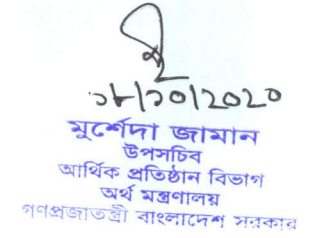 ১৮/১০/২০২০
মুর্শেদা জামান
উপসচিব
আর্থিক প্রতিষ্ঠান বিভাগ
অর্থ মন্ত্রণালয়
গণপ্রজাতন্ত্রী বাংলাদেশ সরকার